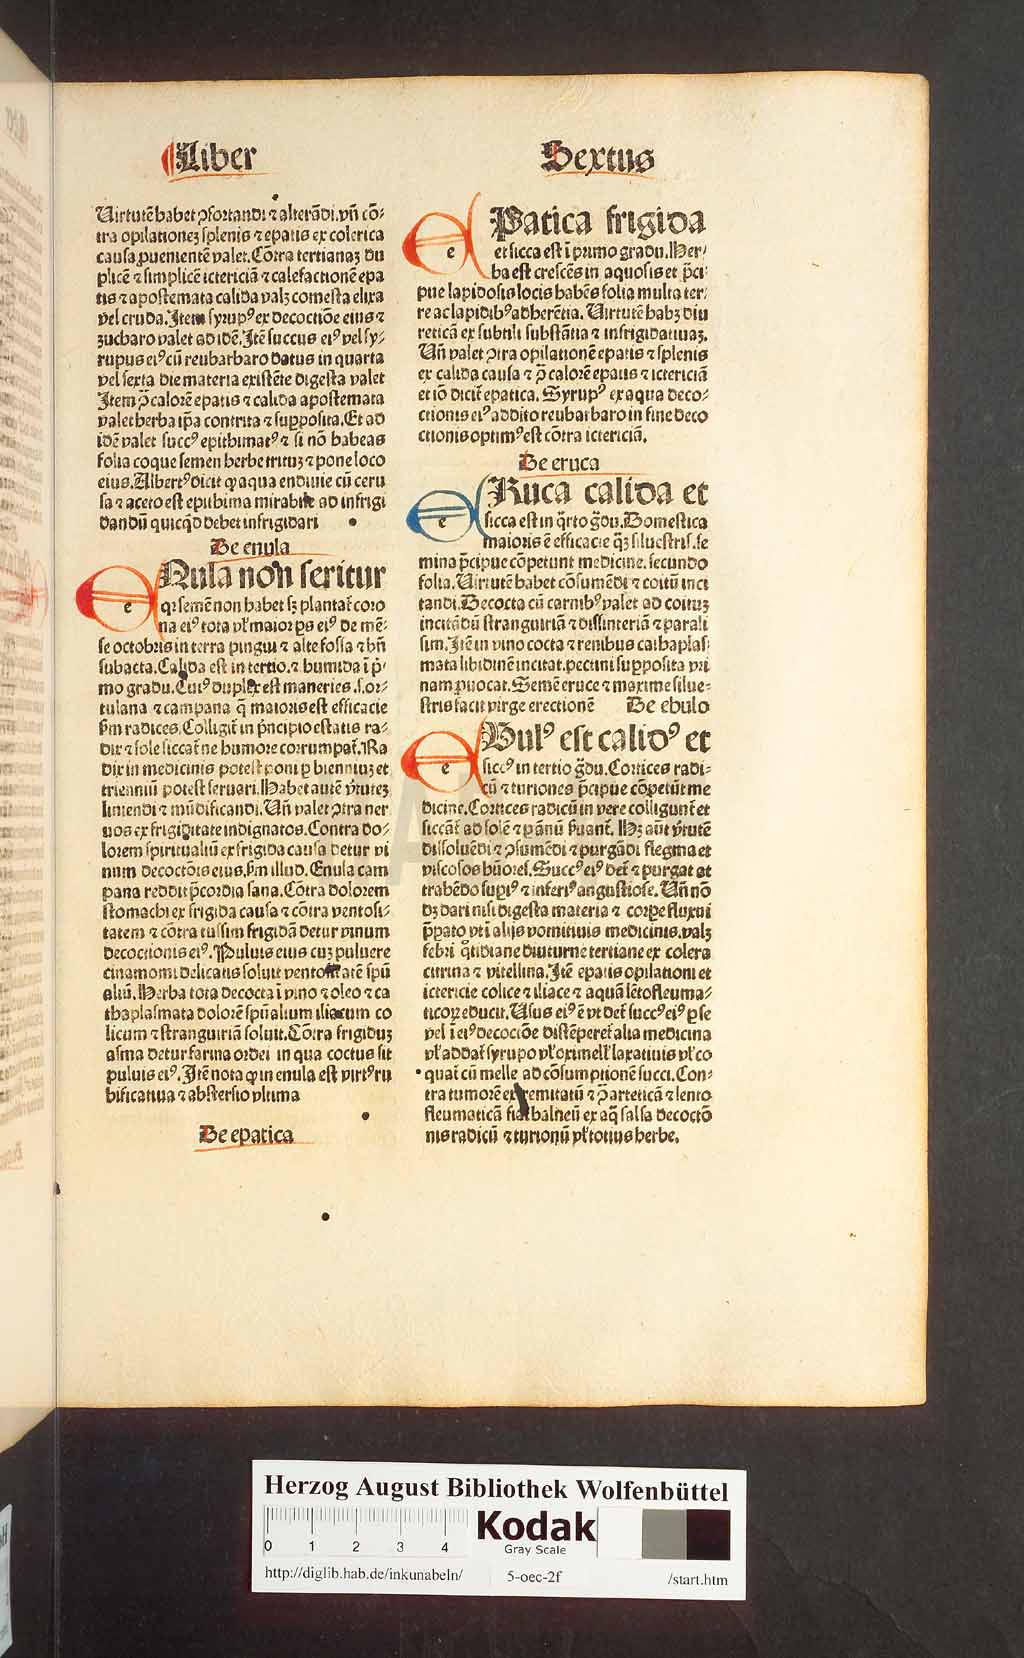 Liber Sextus
Virtutē habet ꝯfortandi ⁊ alterādi.vn̄ cō⸗
tra opilationez splenis ⁊ epatis ex colerica
causa ꝓuenientē valet.Cōtra tertianaz du
plicē ⁊ simplicē ictericiā ⁊ calefactionē epa
tis ⁊ apostemata calida valꝫ comesta elixa
vel cruda.Item syrupꝰ ex decoctiōe eius ⁊
zucharo valet ad idē.Itē succus eiꝰ vel sy⸗
rupus eiꝰ cū reubarbaro datus in quarta
vel sexta die materia existēte digesta valet
Item ꝯ̄ calorē epatis ⁊ calida apostemata
valet herba ip̄a contrita ⁊ supposita.Et ad
idē valet succꝰ epithimatꝰ ⁊ si nō habeas
folia coque semen herbe trituz ⁊ pone loco
eius.Albertꝰ dicit ꝙ aqua endiuie cū ceru
sa ⁊ aceto est epithima mirabile ad infrigi
dandū quicqd debet infrigidari
De enula
e NUla non seritur
qꝛ semē non habet sꝫ plantat̄ coro
na eiꝰ tota vl̄ maior ps eiꝰ de mē⸗
se octobris in terra pingui ⁊ alte fossa ⁊ bn̄
subacta.Calida est in tertio.⁊ humida ī p̄⸗
mo gradu.Cuiꝰ duplex est maneries.s.or⸗
tulana ⁊ campana q̄ maioris est efficacie
ẜm radices.Colligit̄ in p̄ncipio estatis ra⸗
dix ⁊ sole siccat̄ ne humore corrumpat̄.Ra
dix in medicinis potest poni ꝑ bienniuz et
trienniū potest seruari.Habet autē v̄tutez
liniendi ⁊ mūdificandi.Vn̄ valet ꝯtra ner
uos ex frigiditate indignatos.Contra do⸗
lorem spiritualiū ex frigida causa detur vi
num decoctōis eius.ẜm illud.Enula cam
pana reddit p̄cordia sana.Cōtra dolorem
stomachi ex frigida causa ⁊ cōtra ventosi⸗
tatem ⁊ cōtra tussim frigidā detur vinum
decoctionis eiꝰ.Puluis eius cuz puluere
cinamomi delicatis soluit ventositatē spū
aliū.Herba tota decocta ī vino ⁊ oleo ⁊ ca
thaplasmata dolorē spūalium iliacum co
licum ⁊ stranguiriā soluit.Cōtra frigiduz
asma detur farina ordei in qua coctus sit
puluis eiꝰ.Itē nota ꝙ in enula est virtꝰ ru
bificatiua ⁊ abstersio vltima
De epatica
e PAtica frigida
et sicca est ī primo gradu.Her⸗
ba est crescēs in aquosis et p̄ci⸗
pue lapidosis locis habēs folia multa ter⸗
re ac lapidibꝰ adherētia. Virtutē habꝫ diu
reticā ex subtili substātia ⁊ infrigidatiuaz.
Vn̄ valet ꝯtra opilationē epatis ⁊ splenis
ex calida causa ⁊ ꝯ̄ calorē epatis ⁊ ictericiā
et iō dicit̄ epatica. Syrupꝰ ex aqua deco⸗
ctionis eiꝰ addito reubarbaro in fine deco
ctionis optimꝰ est cōtra ictericiā.
De eruca
e RUca calida et
sicca est in q̄rto ḡdu.Domestica
maioris ē efficacie q̄ꝫ siluestris.se
mina p̄cipue cōpetunt medicine.secundo
folia.Virtutē habet cōsumēdi ⁊ coitū inci
tandi.Decocta cū carnibꝰ valet ad coituz
incitādū stranguiriā ⁊ dissinteriā ⁊ parali
sim.Itē in vino cocta ⁊ renibus cathaplas⸗
mata libidinē incitat.pectini supposita vri
nam ꝓuocat.Semē eruce ⁊ maxime silue⸗
stris facit virge erectionē De ebulo
e BUlꝰ est calidꝰ et
siccꝰ in tertio ḡdu.Cortices radi⸗
cū ⁊ turiones p̄cipue cōpetūt me
dicine.Cortices radicū in vere colligunt̄ et
siccāt̄ ad solē ⁊ ꝑ ānū ẜuant̄. Hꝫ aut̄ v̄tutē
dissoluēdi ⁊ ꝯsumēdi ⁊ purgādi flegma et
viscosos hūores.Succꝰ eiꝰ det̄ ⁊ purgat at
trahēdo supiꝰ ⁊ inferiꝰ angustiose.Vn̄ nō
dꝫ dari nisi digesta materia ⁊ corpe fluxui
p̄pato vti alijs vomitiuis medicinis.valꝫ
febri q̊tidiane diuturne tertiane ex colera
citrina ⁊ vitellina.Itē epatis opilationi et
ictericie colice ⁊ iliace ⁊ aquā lētofleuma⸗
ticoꝝ educit.Usus eiꝰ ē vt det̄ succꝰ eiꝰ ꝑ se
vel ī eiꝰ decoctōe distēperet̄ alia medicina
vl̄ addat̄ syrupo vl̄ oximell̄ laxatiuis vl̄ co
quat̄ cū melle ad cōsumptionē succi.Con⸗
tra tumorē extremitatū ⁊ ꝯ̄ arteticā ⁊ lento
fleumaticā fiat balneū ex aq̄ salsa decoctō
nis radicū ⁊ turionū vl̄ totius herbe.
Herzog August Bibliothek Wolfenbüttel
0 1 2 3 4
Kodak
Gray Scale
http://diglib.hab.de/inkunabeln/ 5-oec-2f /start.htm
HAB